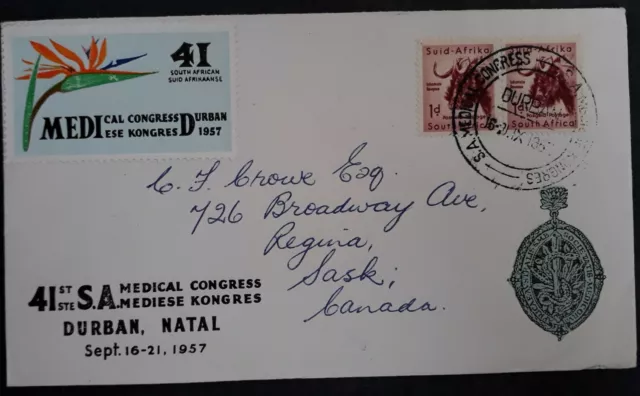 41
SOUTH AFRICAN
SUID AFRIKAANSE
MEDICAL CONGRESS DURBAN
MEDIESE KONGRES 1957
Suid-Afrika
1d
South Africa
Suid-Afrika
South Africa
S.A. MEDICAL CONGRESS
DURBAN
C. F. Crowe Esq.
726 Broadway Ave,
Regina,
Sask;
Canada.
41ST S.A. MEDICAL CONGRESS
STE MEDIESE KONGRES
DURBAN, NATAL
Sept. 16-21, 1957